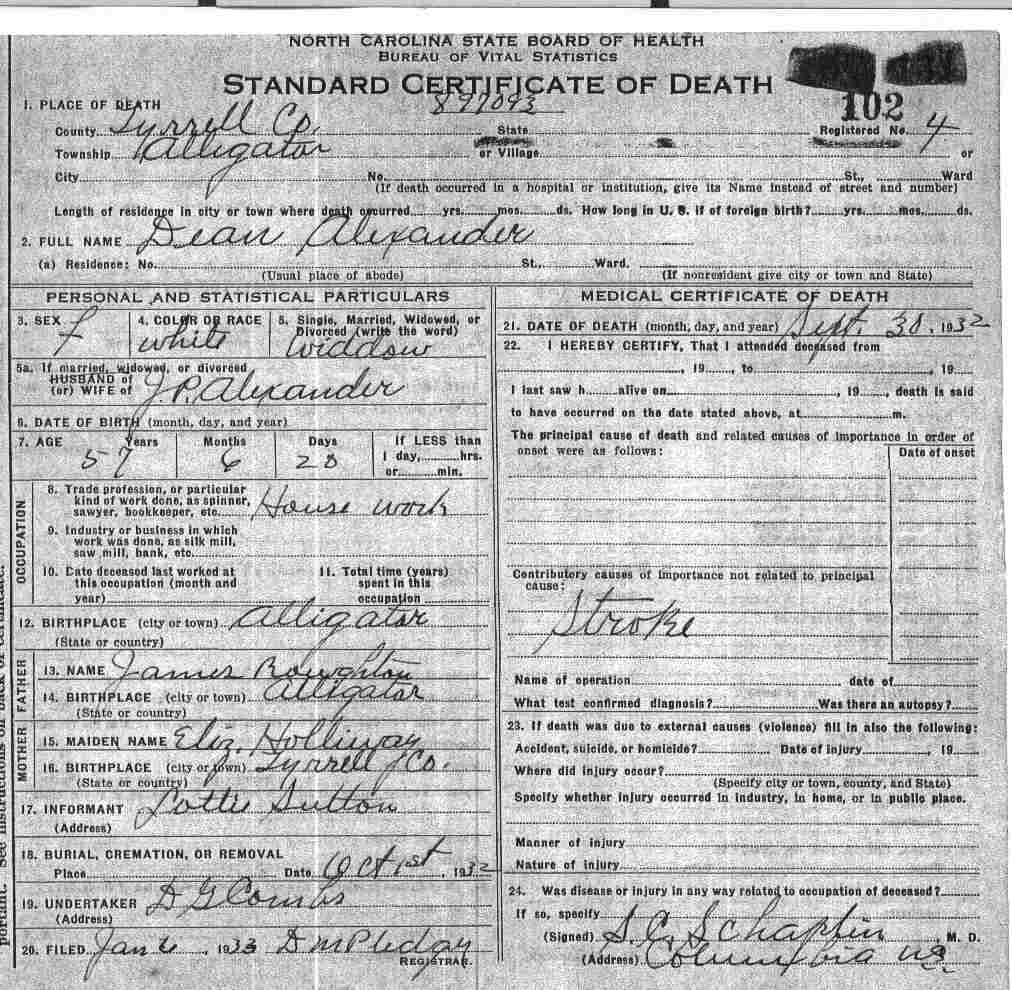 NORTH CAROLINA STATE BOARD OF HEALTH
BUREAU OF VITAL STATISTICS
STANDARD CERTIFICATE OF DEATH
897093
102
1. PLACE OF DEATH
County Tyrrell Co. State Registered No. 4
Township Alligator or Village or
City No. St., Ward
(If death occurred in a hospital or institution, give its Name instead of street and number)
Length of residence in city or town where death occurred yrs. mos. ds. How long in U. S. if of foreign birth? yrs. mos. ds.
2. FULL NAME Dean Alexander
(a) Residence: No. St., Ward.
(Usual place of abode) (If nonresident give city or town and State)
PERSONAL AND STATISTICAL PARTICULARS
3. SEX f 4. COLOR OR RACE white 5. Single, Married, Widowed, or Divorced (write the word) Widdow
5a. If married, widowed, or divorced
HUSBAND of
(or) WIFE of J.P. Alexander
6. DATE OF BIRTH (month, day, and year)
7. AGE Years Months Days If LESS than
57 6 28 1 day, hrs.
or min.
OCCUPATION
8. Trade profession, or particular
kind of work done, as spinner,
sawyer, bookkeeper, etc. House work
9. Industry or business in which
work was done, as silk mill,
saw mill, bank, etc.
10. Date deceased last worked at
this occupation (month and
year)
11. Total time (years)
spent in this
occupation
12. BIRTHPLACE (city or town) Alligator
(State or country)
FATHER
13. NAME James Roughton
14. BIRTHPLACE (city or town) Alligator
(State or country)
MOTHER
15. MAIDEN NAME Eliz. Holliway
16. BIRTHPLACE (city or town) Tyrrell Co.
(State or country)
17. INFORMANT Lottie Sutton
(Address)
18. BURIAL, CREMATION, OR REMOVAL
Place Date Oct 1st, 1932
19. UNDERTAKER D G Combs
(Address)
20. FILED Jan 6, 1933 D M Pledger
REGISTRAR.
MEDICAL CERTIFICATE OF DEATH
21. DATE OF DEATH (month, day, and year) Sept. 30. 1932
22. I HEREBY CERTIFY, That I attended deceased from
, 19 , to , 19
I last saw h alive on , 19 , death is said
to have occurred on the date stated above, at m.
The principal cause of death and related causes of importance in order of
onset were as follows: Date of onset
Contributory causes of importance not related to principal
cause:
Stroke
Name of operation date of
What test confirmed diagnosis? Was there an autopsy?
23. If death was due to external causes (violence) fill in also the following:
Accident, suicide, or homicide? Date of injury , 19
Where did injury occur?
(Specify city or town, county, and State)
Specify whether injury occurred in industry, in home, or in public place.
Manner of injury
Nature of injury
24. Was disease or injury in any way related to occupation of deceased?
If so, specify
(Signed) S. C. Schaplin, M. D.
(Address) Columbia NC.
portant. See instructions on back of certificate.